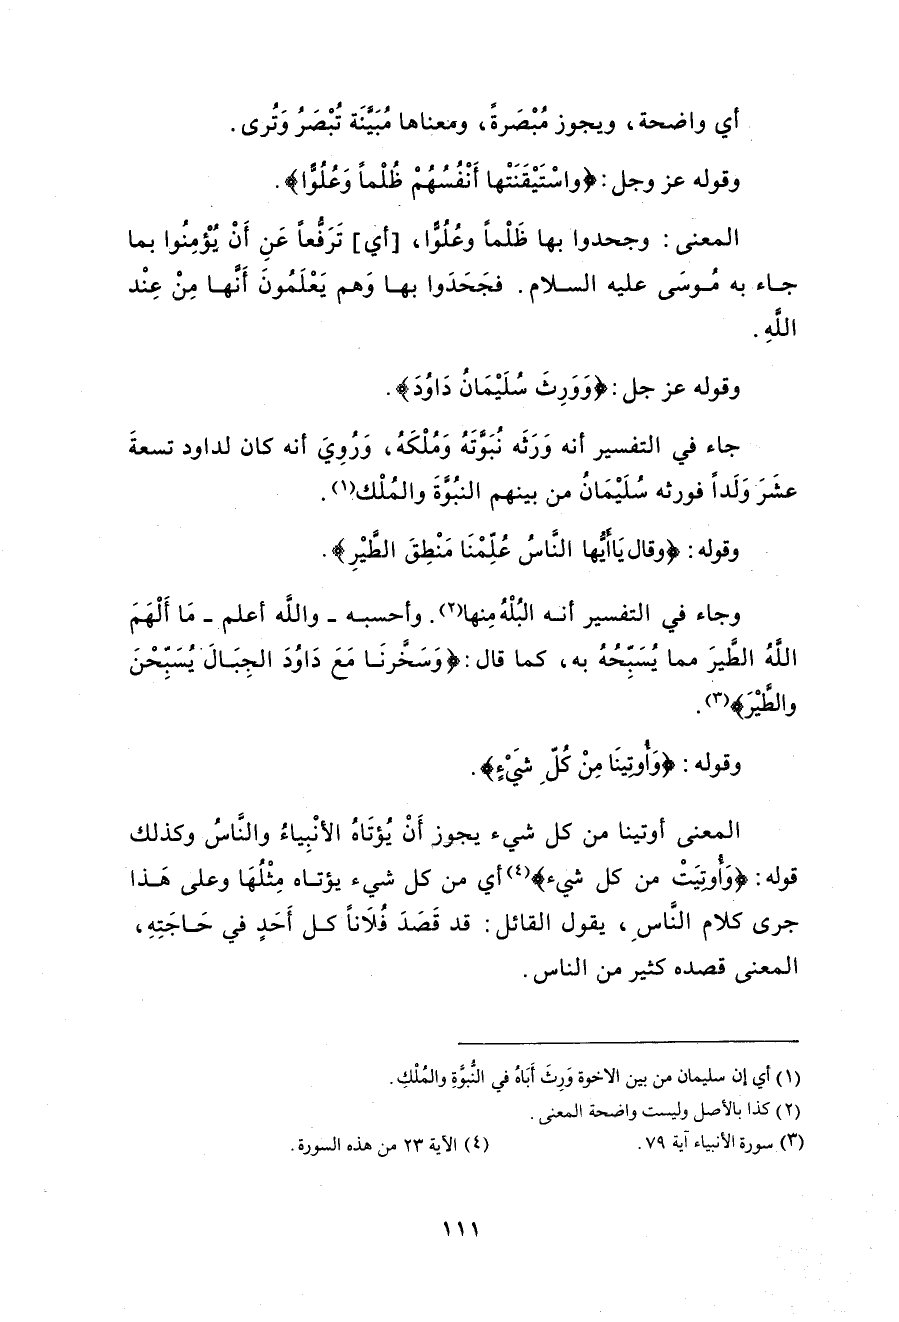 أي واضحة، ويجوز مُبْصَرةً، ومعناها مُبَيَّنَة تُبْصَرُ وَتُرى.
وقوله عز وجل: ﴿واسْتَيْقَنَتْها أَنْفُسُهُمْ ظُلْماً وَعُلُوًّا﴾.
المعنى: وجحدوا بها ظَلْماً وعُلُوًّا، [أي] تَرَفُّعاً عَنِ أَنْ يُؤْمِنُوا بما
جاء به مُوسَى عليه السلام. فجَحَدَوا بها وَهم يَعْلَمُونَ أَنَّها مِنْ عِنْد
اللَّهِ.
وقوله عز جل: ﴿وَوَرِثَ سُلَيْمَانُ دَاوُدَ﴾.
جاء في التفسير أنه وَرَثَه نُبَوَّتَهُ وَمُلْكَهُ، وَرُوِيَ أنه كان لداود تسعةَ
عشَرَ وَلَداً فورثه سُلَيْمَانُ من بينهم النبُوَّةَ والمُلْك(١).
وقوله: ﴿وقال يَاأَيُّها النَّاسُ عُلِّمْنَا مَنْطِقَ الطَّيْرِ﴾.
وجاء في التفسير أنه البُلْهُ مِنها(٢). وأحسبه ـ واللَّه أعلم ـ مَا أَلْهَمَ
اللَّهُ الطَّيرَ مما يُسَبِّحُهُ به، كما قال: ﴿وَسَخَّرنَا مَعَ دَاوُدَ الجِبَالَ يُسَبِّحْنَ
والطَّيْرَ﴾(٣).
وقوله: ﴿وَأُوتِينَا مِنْ كُلِّ شَيْءٍ﴾.
المعنى أوتينا من كل شيء يجوز أَنْ يُؤتَاهُ الأنْبِياءُ والنَّاسُ وكذلك
قوله: ﴿وَأُوتِيَتْ من كل شيء﴾(٤) أي من كل شيء يؤتاه مِثْلُهَا وعلى هَذا
جرى كلام النَّاسِ، يقول القائل: قد قَصَدَ فُلَاناً كل أَحَدٍ في حَاجَتِهِ،
المعنى قصده كثير من الناس.
(١) أي إن سليمان من بين الاخوة وَرِثَ أَبَاهُ في النُّبُوَّةِ والمُلْكِ.
(٢) كذا بالأصل وليست واضحة المعنى.
(٣) سورة الأنبياء آية ٧٩. (٤) الآية ٢٣ من هذه السورة.
١١١